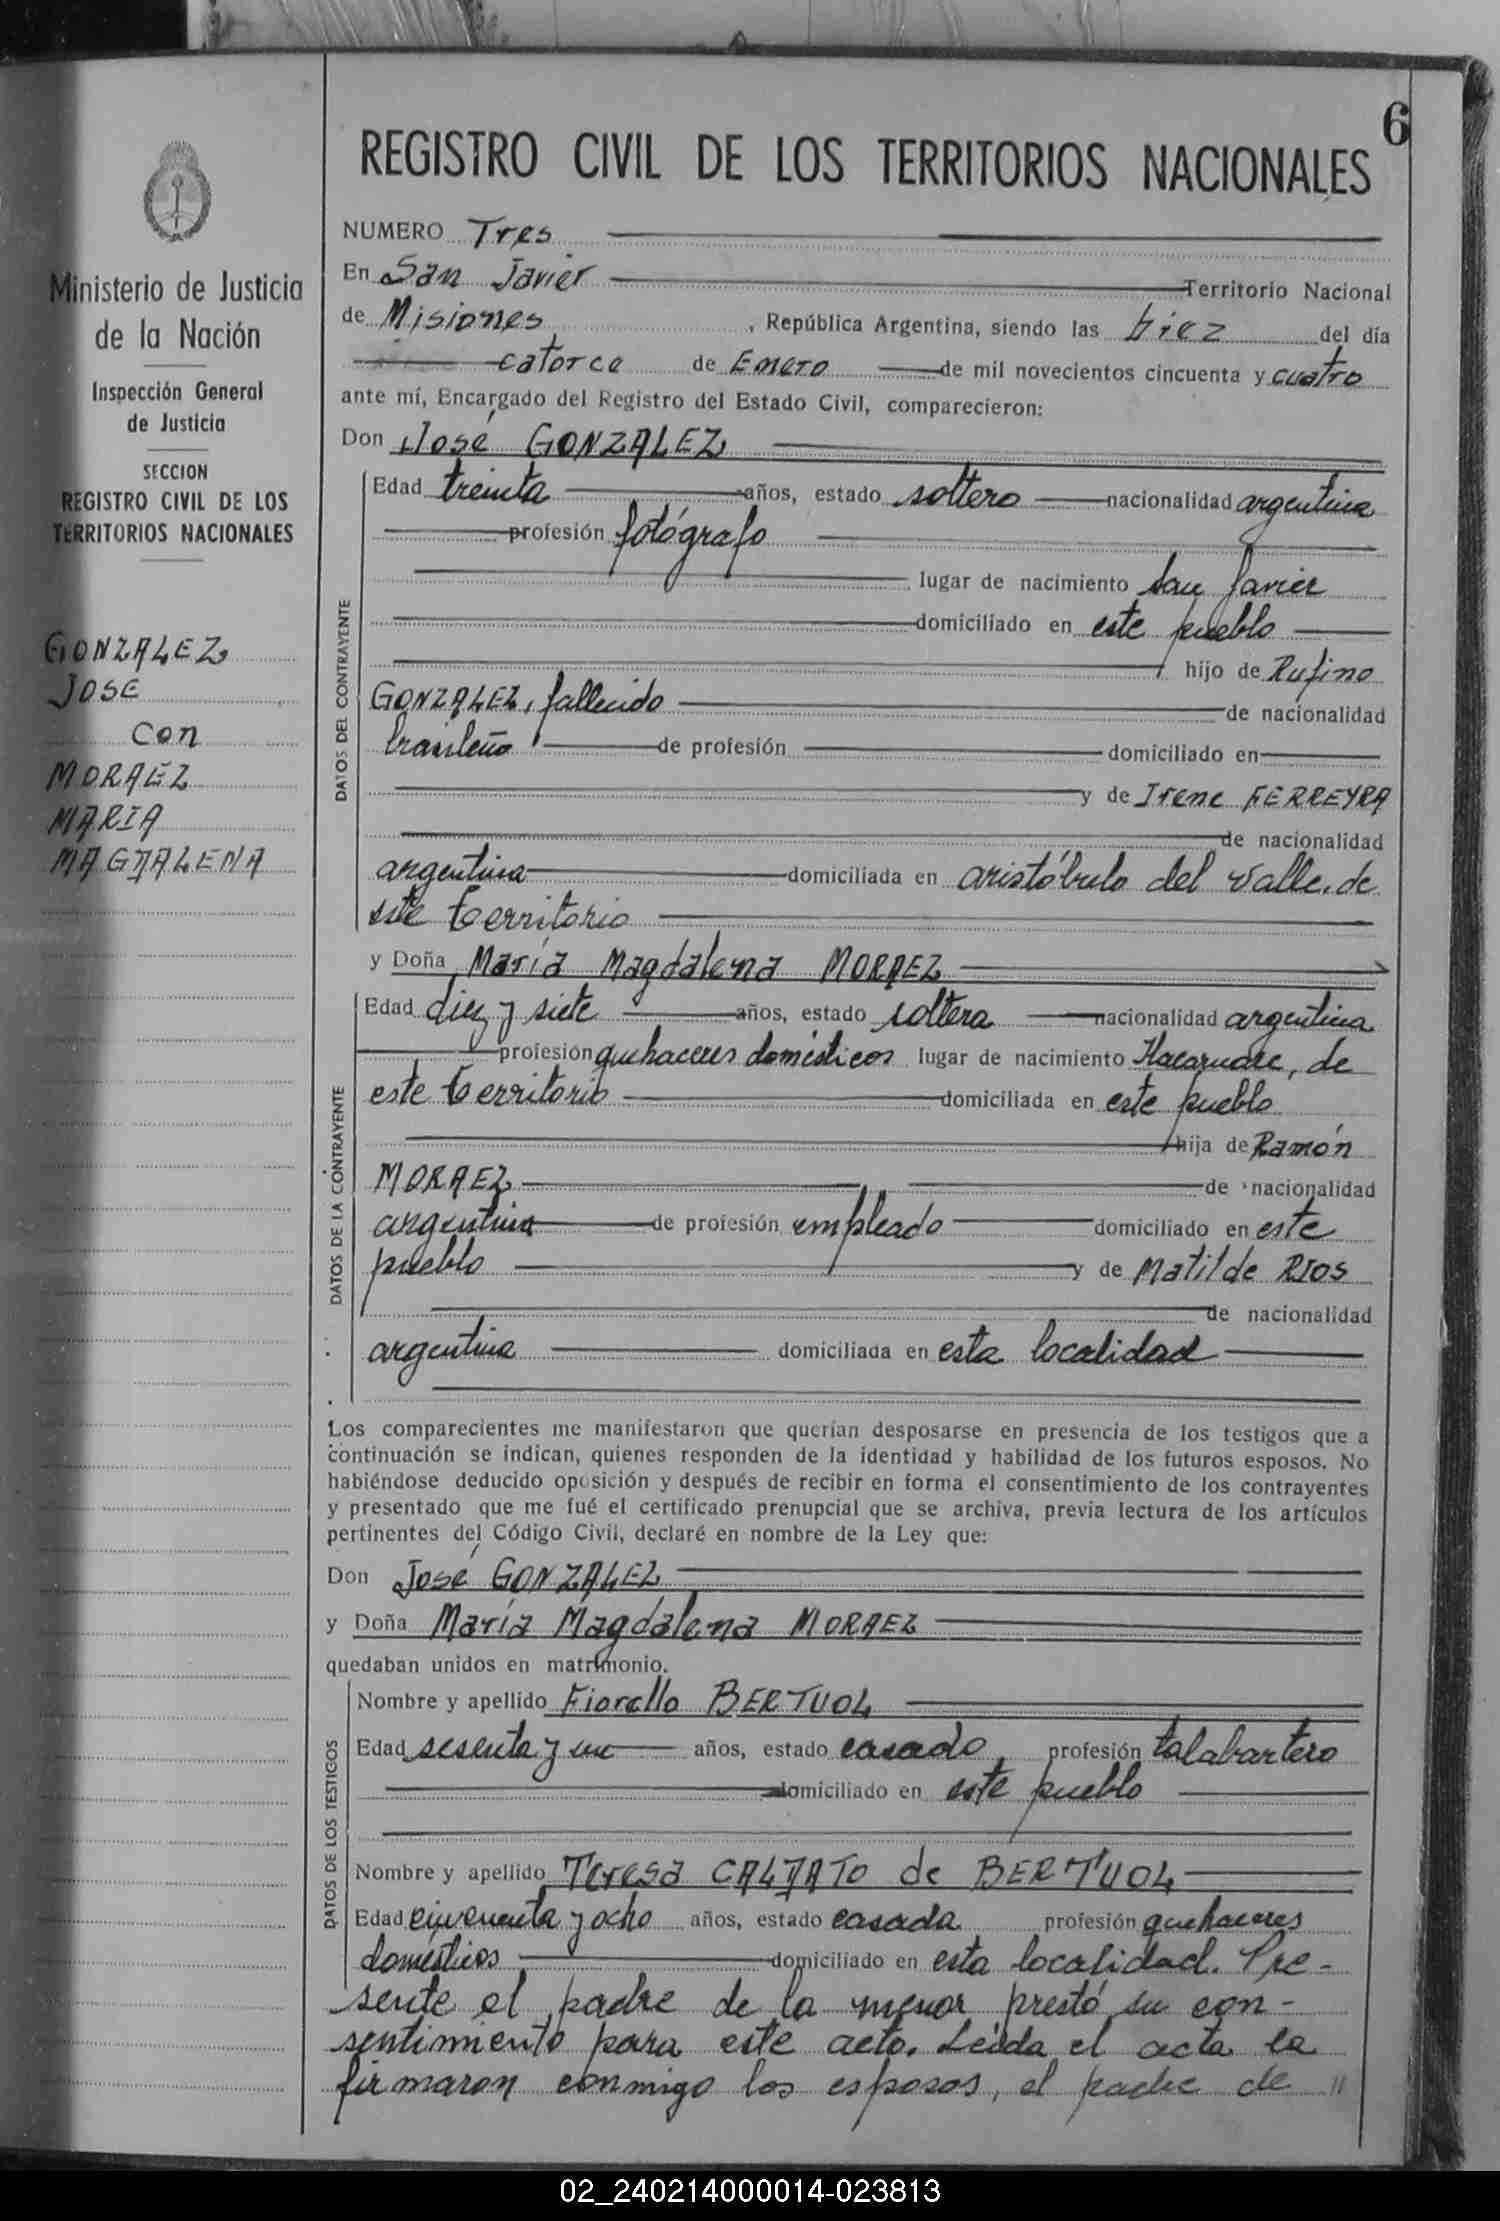 6
REGISTRO CIVIL DE LOS TERRITORIOS NACIONALES
Ministerio de Justicia
de la Nación
Inspección General
de Justicia
SECCION
REGISTRO CIVIL DE LOS
TERRITORIOS NACIONALES
GONZALEZ
JOSE
con
MORAEZ
MARIA
MAGDALENA
NUMERO Tres
En San Javier Territorio Nacional
de Misiones, República Argentina, siendo las diez del día
catorce de Enero de mil novecientos cincuenta y cuatro
ante mí, Encargado del Registro del Estado Civil, comparecieron:
Don José GONZALEZ
DATOS DEL CONTRAYENTE
Edad treinta años, estado soltero nacionalidad argentina
profesión fotógrafo
lugar de nacimiento San Javier
domiciliado en este pueblo
hijo de Rufino
GONZALEZ, fallecido de nacionalidad
brasileño de profesión domiciliado en
y de Irene FERREYRA
de nacionalidad
argentina domiciliada en aristóbulo del Valle, de
este territorio
y Doña María Magdalena MORAEZ
DATOS DE LA CONTRAYENTE
Edad diez y siete años, estado soltera nacionalidad argentina
profesión quehaceres domésticos lugar de nacimiento Itacaruare, de
este territorio domiciliada en este pueblo
hija de Ramón
MORAEZ de nacionalidad
argentina de profesión empleado domiciliado en este
pueblo y de Matilde RIOS
de nacionalidad
argentina domiciliada en esta localidad
Los comparecientes me manifestaron que querían desposarse en presencia de los testigos que a
continuación se indican, quienes responden de la identidad y habilidad de los futuros esposos. No
habiéndose deducido oposición y después de recibir en forma el consentimiento de los contrayentes
y presentado que me fué el certificado prenupcial que se archiva, previa lectura de los artículos
pertinentes del Código Civil, declaré en nombre de la Ley que:
Don José GONZALEZ
y Doña María Magdalena MORAEZ
quedaban unidos en matrimonio.
DATOS DE LOS TESTIGOS
Nombre y apellido Fiorello BERTUOL
Edad sesenta y un años, estado casado, profesión talabartero
domiciliado en este pueblo
Nombre y apellido Teresa CALDATO de BERTUOL
Edad cincuenta y ocho años, estado casada profesión quehaceres
domésticos domiciliado en esta localidad. Pre-
sente el padre de la menor prestó su con-
sentimiento para este acto. Leída el acta la
firmaron conmigo los esposos, el padre de "
02_240214000014-023813